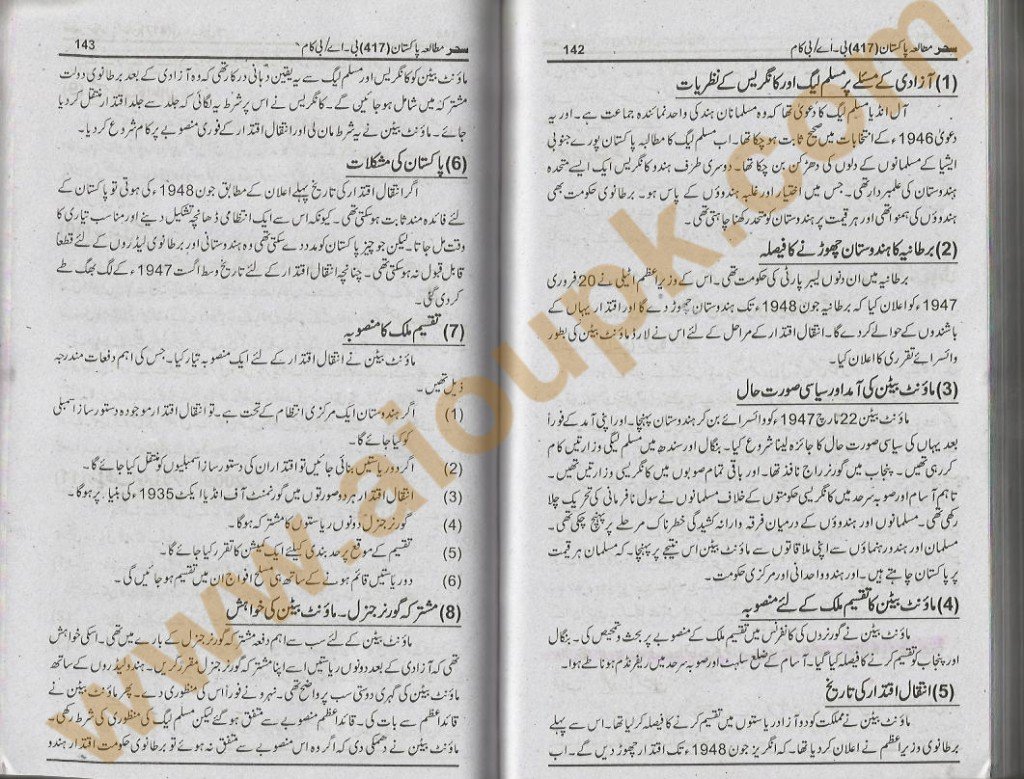 سحر مطالعہ پاکستان (417) بی۔اے/بی کام 142
(1) آزادی کے مسئلے پر مسلم لیگ اور کانگریس کے نظریات
آل انڈیا مسلم لیگ کا دعویٰ تھا کہ وہ مسلمانان ہند کی واحد نمائندہ جماعت ہے۔ اور یہ
دعویٰ 1946ء کے انتخابات میں صحیح ثابت ہو چکا تھا۔ اب مسلم لیگ کا مطالبہ پاکستان پورے جنوبی
ایشیا کے مسلمانوں کے دلوں کی دھڑکن بن چکا تھا۔ دوسری طرف ہندو کانگریس ایک ایسے متحدہ
ہندوستان کی علمبردار تھی۔ جس میں اختیار اور غلبہ ہندوؤں کے پاس ہو۔ برطانوی حکومت بھی
ہندوؤں کی ہمنوا تھی اور ہر قیمت پر ہندوستان کو متحد رکھنا چاہتی تھی۔
(2) برطانیہ کا ہندوستان چھوڑنے کا فیصلہ
برطانیہ میں ان دنوں لیبر پارٹی کی حکومت تھی۔ اس کے وزیر اعظم اٹیلی نے 20 فروری
1947 کو اعلان کیا کہ برطانیہ جون 1948ء تک ہندوستان چھوڑ دے گا اور اقتدار یہاں کے
باشندوں کے حوالے کر دے گا۔ انتقال اقتدار کے مراحل کے لئے اس نے لارڈ ماؤنٹ بیٹن کی بطور
وائسرائے تقرری کا اعلان کیا۔
(3) ماؤنٹ بیٹن کی آمد اور سیاسی صورت حال
ماؤنٹ بیٹن 22 مارچ 1947ء کو وائسرائے بن کر ہندوستان پہنچا۔ اور اپنی آمد کے فوراً
بعد یہاں کی سیاسی صورت حال کا جائزہ لینا شروع کیا۔ بنگال اور سندھ میں مسلم لیگی وزارتیں کام
کر رہی تھیں۔ پنجاب میں گورنر راج نافذ تھا۔ اور باقی تمام صوبوں میں کانگریسی وزارتیں تھیں۔
تاہم آسام اور صوبہ سرحد میں کانگریسی حکومتوں کے خلاف مسلمانوں نے سول نافرمانی کی تحریک چلا
رکھی تھی۔ مسلمانوں اور ہندوؤں کے درمیان فرقہ دارانہ کشیدگی خطرناک مرحلے پر پہنچ چکی تھی۔
مسلمان اور ہندو رہنماؤں سے اپنی ملاقاتوں سے ماؤنٹ بیٹن اس نتیجے پر پہنچا۔ کہ مسلمان ہر قیمت
پر پاکستان چاہتے ہیں۔ اور ہندو وحدانی اور مرکزی حکومت۔
(4) ماؤنٹ بیٹن کا تقسیم ملک کے لئے منصوبہ
ماؤنٹ بیٹن نے گورنروں کی کانفرنس میں تقسیم ملک کے منصوبے پر بحث و تمحیص کی۔ بنگال
اور پنجاب کو تقسیم کرنے کا فیصلہ کیا گیا۔ آسام کے ضلع سلہٹ اور صوبہ سرحد میں ریفرنڈم ہونا طے ہوا۔
(5) انتقال اقتدار کی تاریخ
ماؤنٹ بیٹن نے مملکت کو دو آزاد ریاستوں میں تقسیم کرنے کا فیصلہ کر لیا تھا۔ اس سے پہلے
برطانوی وزیر اعظم نے اعلان کر دیا تھا۔ کہ انگریز جون 1948ء تک اقتدار چھوڑ دیں گے۔ اب
سحر مطالعہ پاکستان (417) بی۔اے/بی کام 143
ماؤنٹ بیٹن کو کانگریس اور مسلم لیگ سے یہ یقین دہانی درکار تھی کہ وہ آزادی کے بعد برطانوی دولت
مشترکہ میں شامل ہو جائیں گے۔ کانگریس نے اس پر شرط یہ لگائی کہ جلد سے جلد اقتدار منتقل کر دیا
جائے۔ ماؤنٹ بیٹن نے یہ شرط مان لی اور انتقال اقتدار کے فوری منصوبے پر کام شروع کر دیا۔
(6) پاکستان کی مشکلات
اگر انتقال اقتدار کی تاریخ پہلے اعلان کے مطابق جون 1948ء کی ہوتی تو پاکستان کے
لئے فائدہ مند ثابت ہو سکتی تھی۔ کیونکہ اس سے ایک انتظامی ڈھانچہ تشکیل دینے اور مناسب تیاری کا
وقت مل جاتا۔ لیکن جو چیز پاکستان کو مدد دے سکتی تھی وہ ہندوستانی اور برطانوی لیڈروں کے لئے قطعاً
قابل قبول نہ ہو سکتی تھی۔ چنانچہ انتقال اقتدار کے لئے تاریخ وسط اگست 1947ء کے لگ بھگ طے
کر دی گئی۔
(7) تقسیم ملک کا منصوبہ
ماؤنٹ بیٹن نے انتقال اقتدار کے لئے ایک منصوبہ تیار کیا۔ جس کی اہم دفعات مندرجہ
ذیل تھیں۔
(1) اگر ہندوستان ایک مرکزی انتظام کے تحت ہے۔ تو انتقال اقتدار موجودہ دستور ساز اسمبلی
کو کیا جائے گا۔
(2) اگر دو ریاستیں بنائی جائیں تو اقتدار ان کی دستور ساز اسمبلیوں کو منتقل کیا جائے گا۔
(3) انتقال اقتدار ہر دو صورتوں میں گورنمنٹ آف انڈیا ایکٹ 1935ء کی بنیا پر ہوگا۔
(4) گورنر جنرل دونوں ریاستوں کا مشترکہ ہوگا۔
(5) تقسیم کے موقع پر حد بندی کیلئے ایک کمیشن کا تقرر کیا جائے گا۔
(6) دو ریاستیں قائم ہونے کے ساتھ ہی مسلح افواج ان میں تقسیم ہو جائیں گی۔
(8) مشترکہ گورنر جنرل۔ ماؤنٹ بیٹن کی خواہش
ماؤنٹ بیٹن کے لئے سب سے اہم دفعہ مشترکہ گورنر جنرل کے بارے میں تھی۔ اسکی خواہش
تھی کہ آزادی کے بعد دونوں ریاستیں اسے اپنا مشترکہ گورنر جنرل مقرر کریں۔ ہندو لیڈروں کے ساتھ
ماؤنٹ بیٹن کی گہری دوستی سب پر واضح تھی۔ نہرو نے فوراً اس کی منظوری دے۔ پھر ماؤنٹ بیٹن نے
قائد اعظم سے بات کی۔ قائد اعظم منصوبے سے متفق ہو گئے لیکن مسلم لیگ کی منظوری کی شرط رکھی۔
ماؤنٹ بیٹن نے دھمکی دی کہ اگر وہ اس منصوبے سے متفق نہ ہوئے تو برطانوی حکومت اقتدار ہندو
www.aioupk.com